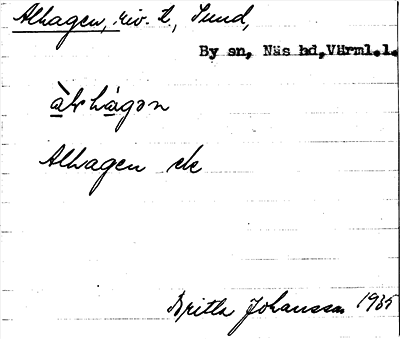 Alhagen, riv. t., Sund,
By sn, Näs hd, Värml.l.
Alhagen ek
Britta Johansson 1935